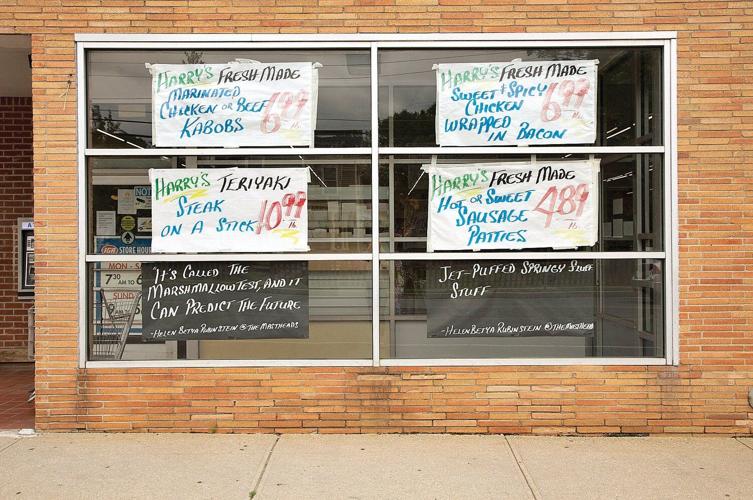 HARRY'S FRESH MADE
MARINATED
CHICKEN OR BEEF
KABOBS
6.99
lb
HARRY'S FRESH MADE
SWEET & SPICY
CHICKEN
WRAPPED
IN BACON
6.99
lb
HARRY'S TERIYAKI
STEAK
ON A STICK
10.99
lb
HARRY'S FRESH MADE
HOT OR SWEET
SAUSAGE
PATTIES
4.89
lb
"IT'S CALLED THE
MARSHMALLOW TEST, AND IT
CAN PREDICT THE FUTURE
-HELEN BETYA RUBINSTEIN @ THE MASTHEADS
JET-PUFFED SPRINGY STUFF
STUFF
-HELEN BETYA RUBINSTEIN @ THE MASTHEADS
IGA STORE HOURS
MON - S
7:30 AM TO
SUND